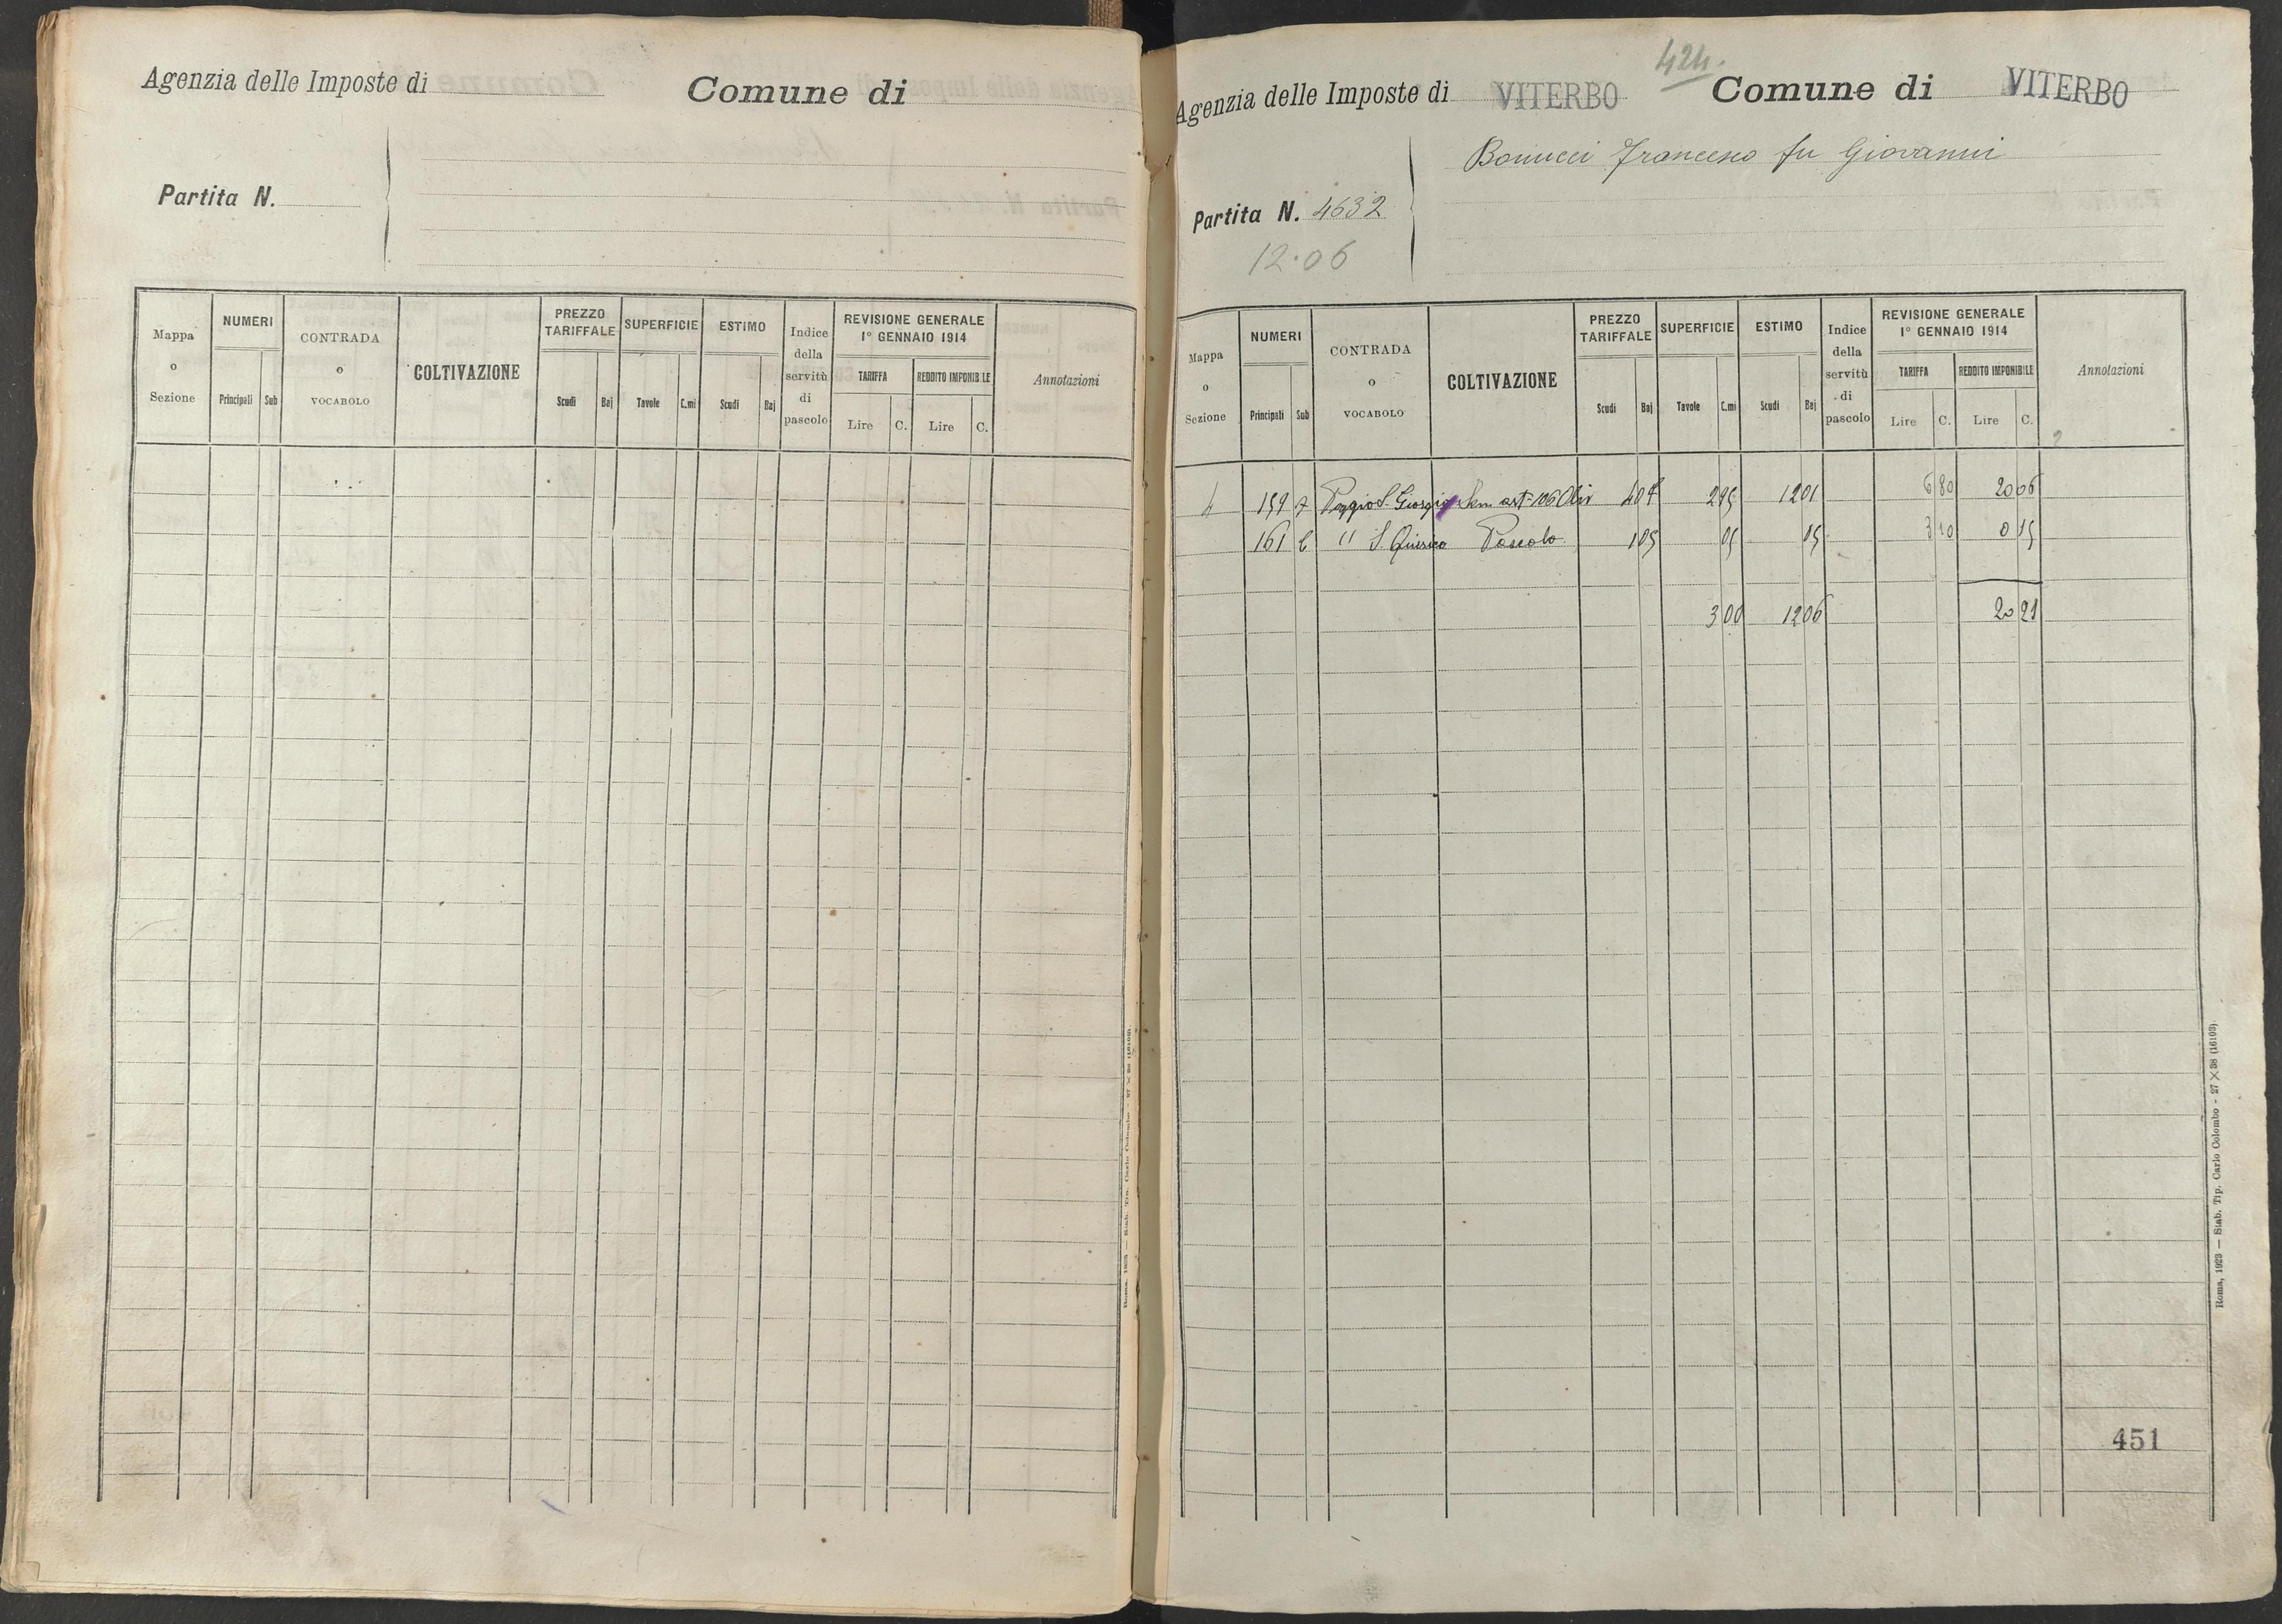 Agenzia delle Imposte di
Comune di
Partita N.
Mappa o Sezione
NUMERI
Principali Sub
CONTRADA o VOCABOLO
COLTIVAZIONE
PREZZO TARIFFALE
Scudi Baj
SUPERFICIE
Tavole C.mi
ESTIMO
Scudi Baj
Indice della servitù di pascolo
REVISIONE GENERALE 1° GENNAIO 1914
TARIFFA
Lire C.
REDDITO IMPONIBILE
Lire C.
Annotazioni
424.
Agenzia delle Imposte di VITERBO
Comune di VITERBO
Bonucci Francesco fu Giovanni
Partita N. 4632
12.06
Mappa o Sezione
NUMERI
Principali Sub
CONTRADA o VOCABOLO
COLTIVAZIONE
PREZZO TARIFFALE
Scudi Baj
SUPERFICIE
Tavole C.mi
ESTIMO
Scudi Baj
Indice della servitù di pascolo
REVISIONE GENERALE 1° GENNAIO 1914
TARIFFA
Lire C.
REDDITO IMPONIBILE
Lire C.
Annotazioni
Poggio S. Giorgio Sem. 4 07 2 95 12 01 6 80 20 06
161 " S. Quirico Pascolo 1 05 05 05 3 10 0 15
3 00 12 06 20 21
451
Roma, 1923 — Stab. Tip. Carlo Colombo - 27 × 38 (16103).